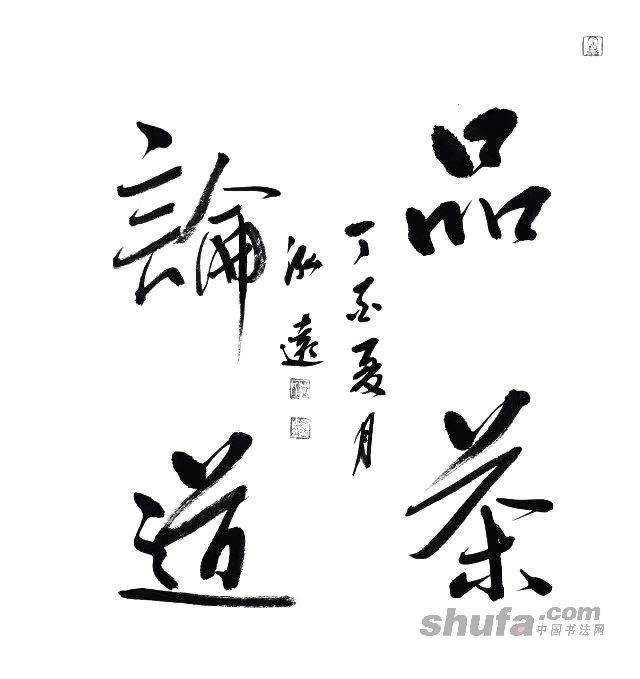 品茶
丁酉夏月
泓遠
論道
shufa.com
中国书法网